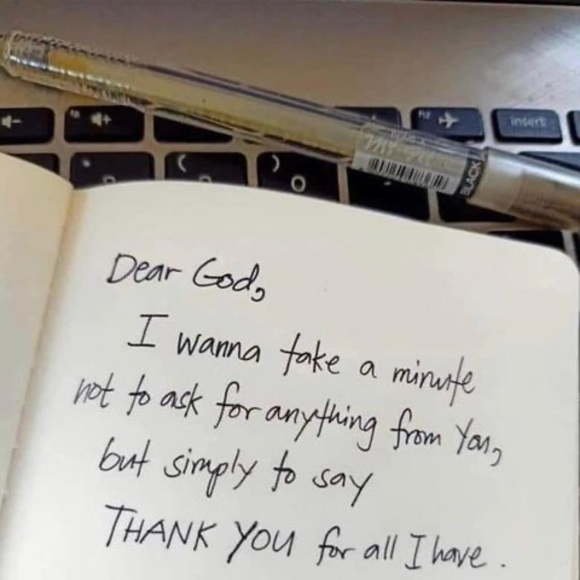 insert
BLACK
Dear God,
I wanna take a minute
not to ask for anything from You,
but simply to say
THANK YOU for all I have.